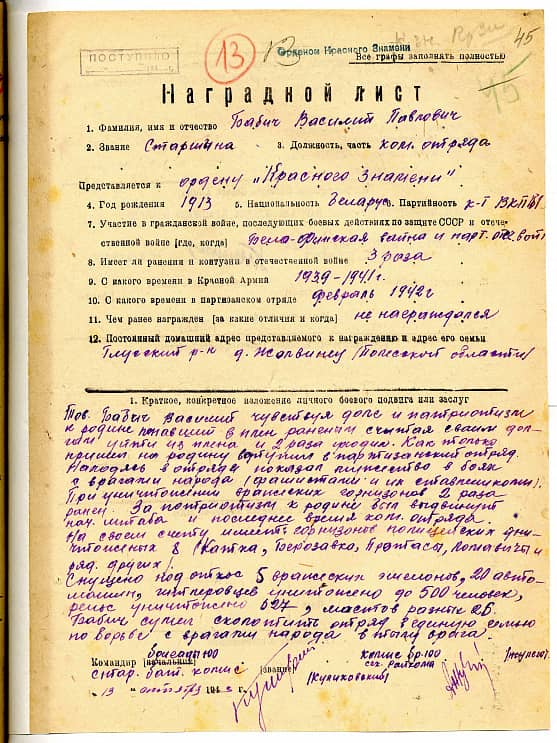 45
13 13
Орденом Красного Знамени
ПОСТУПИЛО
Все графы заполнять полностью
45
Наградной лист
1. Фамилия, имя и отчество Бабич Василий Павлович
2. Звание Старшина 3. Должность, часть ком. отряда
Представляется к ордену „Красного Знамени"
4. Год рождения 1913 5. Национальность Беларус 6. Партийность к-т ВКП(б)
7. Участие в гражданской войне, последующих боевых действиях по защите СССР и отече-
ственной войне [где, когда] Бело-Финская война и парт. отеч. война
8. Имеет ли ранения и контузии в отечественной войне 3 раза
9. С какого времени в Красной Армии 1939-1941 г.
10. С какого времени в партизанском отряде февраль 1942 г
11. Чем ранее награжден [за какие отличия и когда] не награждался
12. Постоянный домашний адрес представляемого к награждению и адрес его семьи
Глусский р-н д. (Полесской области)
1. Краткое, конкретное изложение личного боевого подвига или заслуг
Тов. Бабич Василий чувствуя долг и патриотизм
к родине попавший в плен раненым считая своим дол-
гом уйти из плена и 2 раза уходил. Как только
пришел на родину вступил в партизанский отряд.
Находясь в отряде показал мужество в боях
с врагами народа (фашистами и их ставленниками).
При уничтожении вражеских горнизонов 2 раза
ранен. За патриотизм к родине был выдвинут
нач. штаба и последнее время ком. отряда.
На своем счету имеет горнизонов полицейских уни-
чтоженых 8 (Катка, Березовка, Протаса, Ломавичы и
ряд других).
Спущено под откос 5 вражеских эшелонов, 20 авто-
машин, гитлеровцев уничтожено до 500 человек,
рельс уничтожено 527, мостов разных 26.
Бабич сумел сколотить отряд в единую семью
по борьбе с врагами народа в тылу врага.
бригады 100 комис бр-100
Командир [начальник] Звание сек. райкома
стар. бат. комис (Куликовский)
13 октября 194